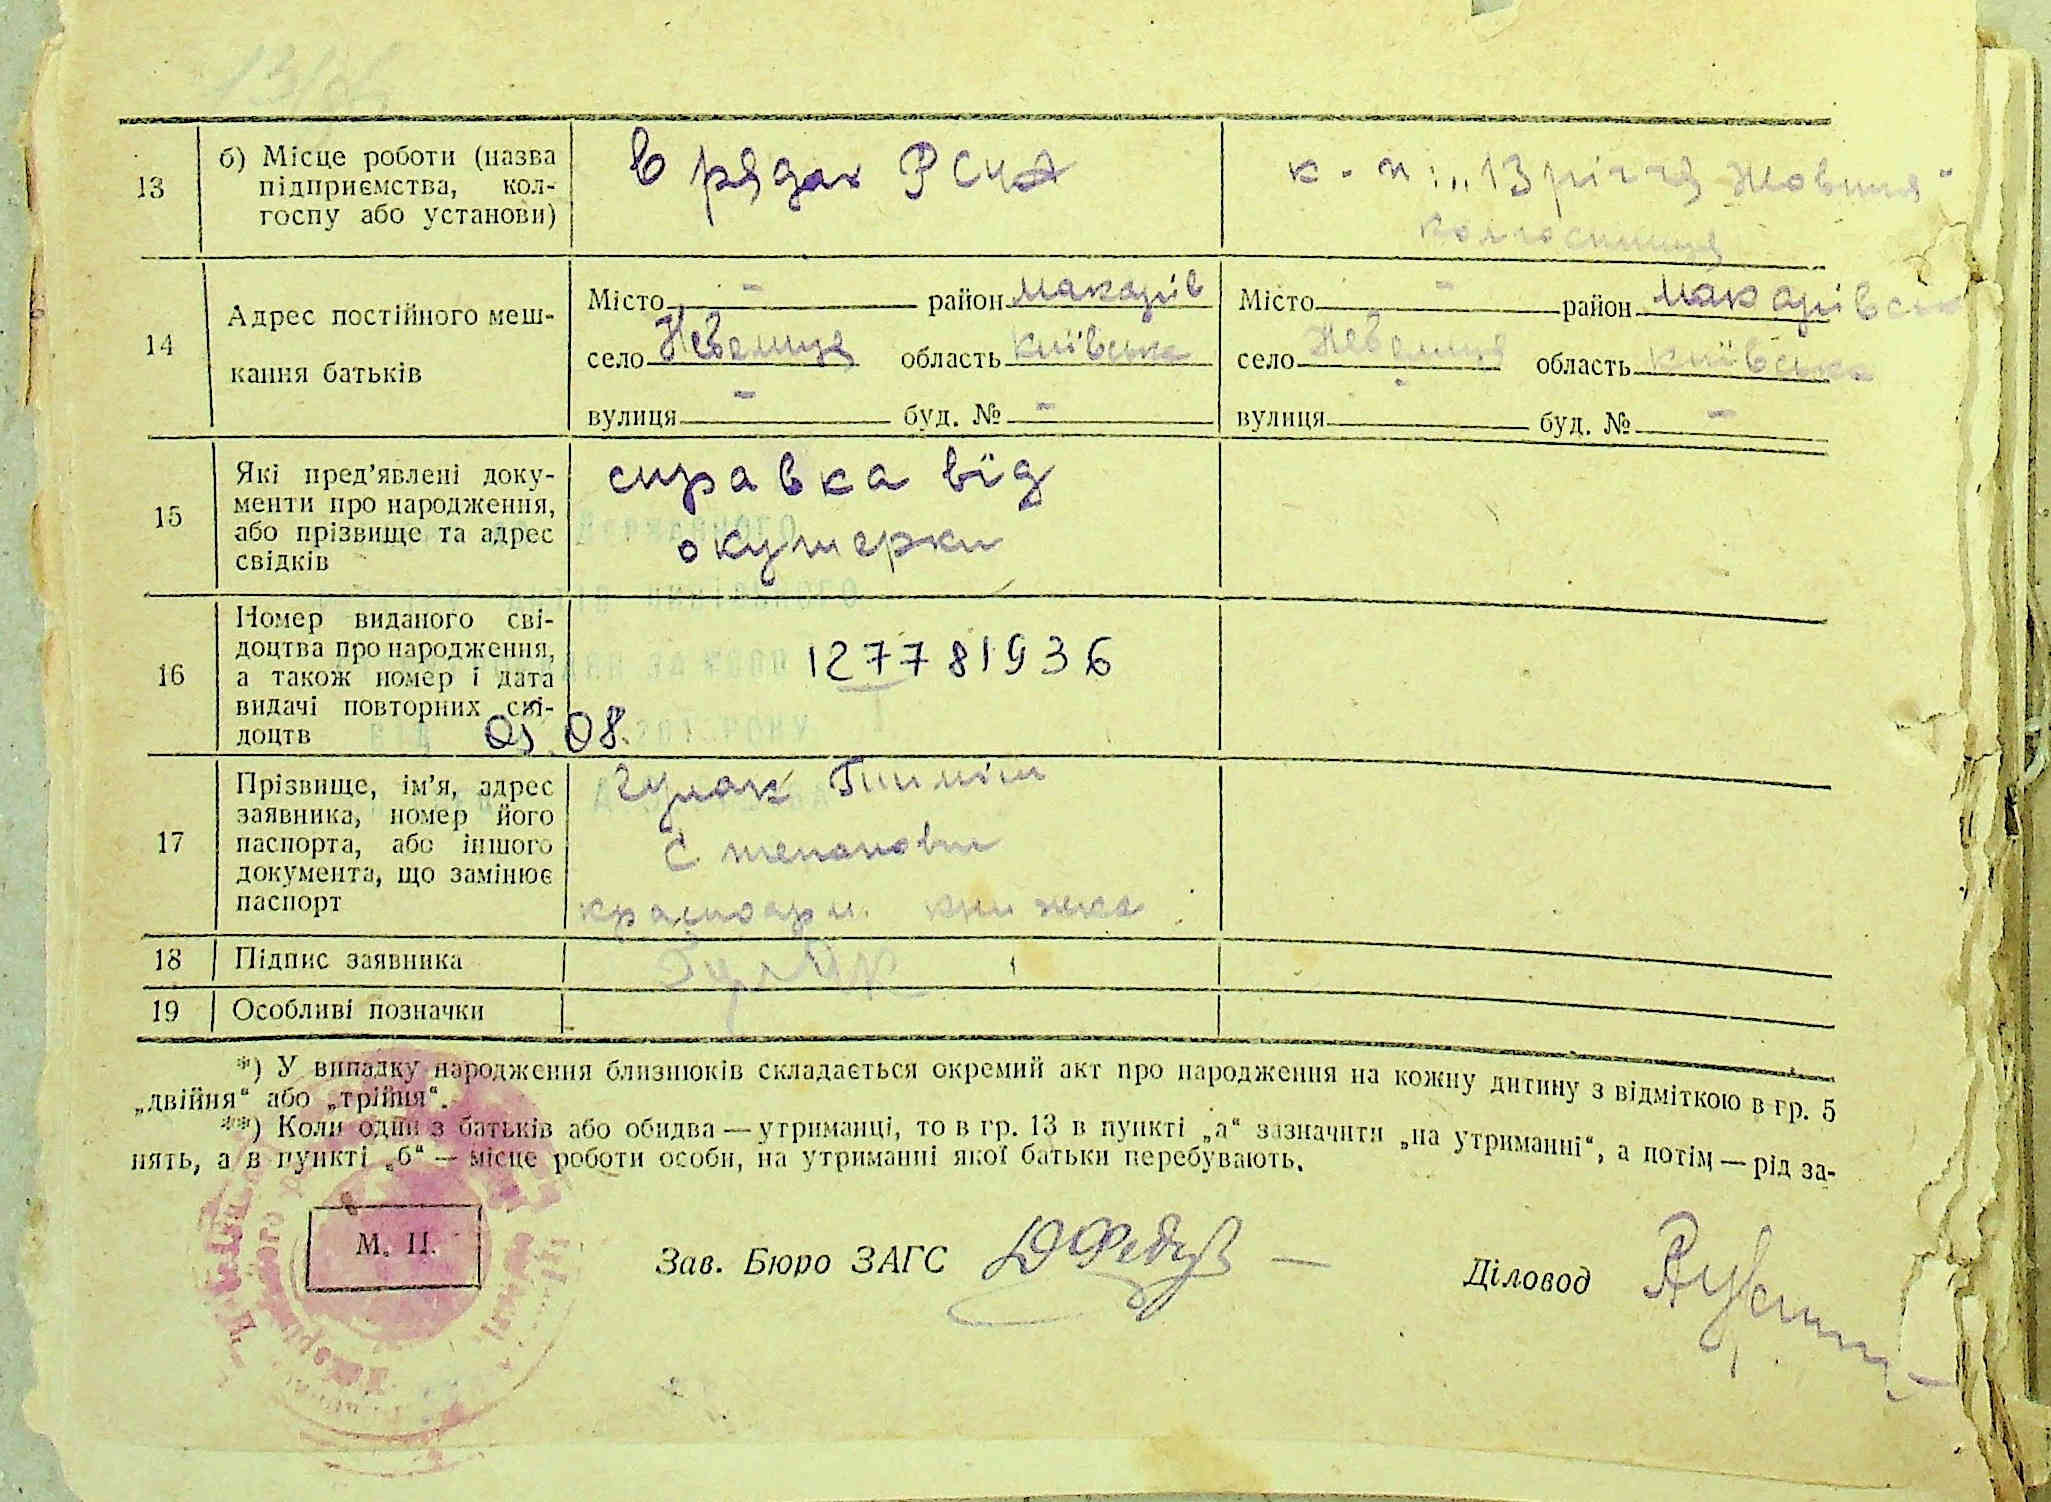 13
б) Місце роботи (назва
підприємства, кол-
госпу або установи)
в рядах РСЧА
к-п: „13 річчя Жовтня“
колгоспниця
14
Адрес постійного меш-
кання батьків
Місто - район Макарів
село Небелиця область Київська
вулиця - буд. № -
Місто - район Макарівськ
село Небелиця область Київська
вулиця - буд. № -
15
Які пред’явлені доку-
менти про народження,
або прізвище та адрес
свідків
справка від
окушерки
16
Номер виданого сві-
доцтва про народження,
а також номер і дата
видачі повторних сві-
доцтв
12778 1936
08.
17
Прізвище, ім’я, адрес
заявника, номер його
паспорта, або іншого
документа, що замінює
паспорт
Гулак
Степанови
красноарм. книжка
18
Підпис заявника
Гулак
19
Особливі позначки
*) У випадку народження близнюків складається окремий акт про народження на кожну дитину з відміткою в гр. 5
„двійня“ або „трійня“.
**) Коли один з батьків або обидва — утриманці, то в гр. 13 в пункті „а“ зазначити „на утриманні“, а потім — рід за-
нять, а в пункті „б“ — місце роботи особи, на утриманні якої батьки перебувають.
М. П.
Зав. Бюро ЗАГС
Діловод